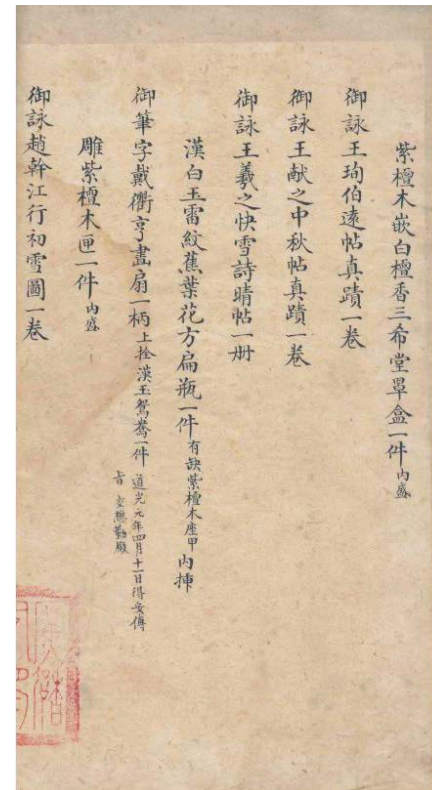 紫檀木嵌白檀香三希堂罩盒一件內盛
御詠王珣伯遠帖真蹟一卷
御詠王献之中秋帖真蹟一卷
御詠王羲之快雪詩晴帖一册
漢白玉雷紋蕉葉花方扁瓶一件有缺紫檀木座甲內揷
御筆字戴衢亨畫扇一柄上拴漢玉鴛鴦一件
道光元年四月十一日得安傳
旨交懋勤殿
雕紫檀木匣一件內盛
御詠趙幹江行初雪圖一卷